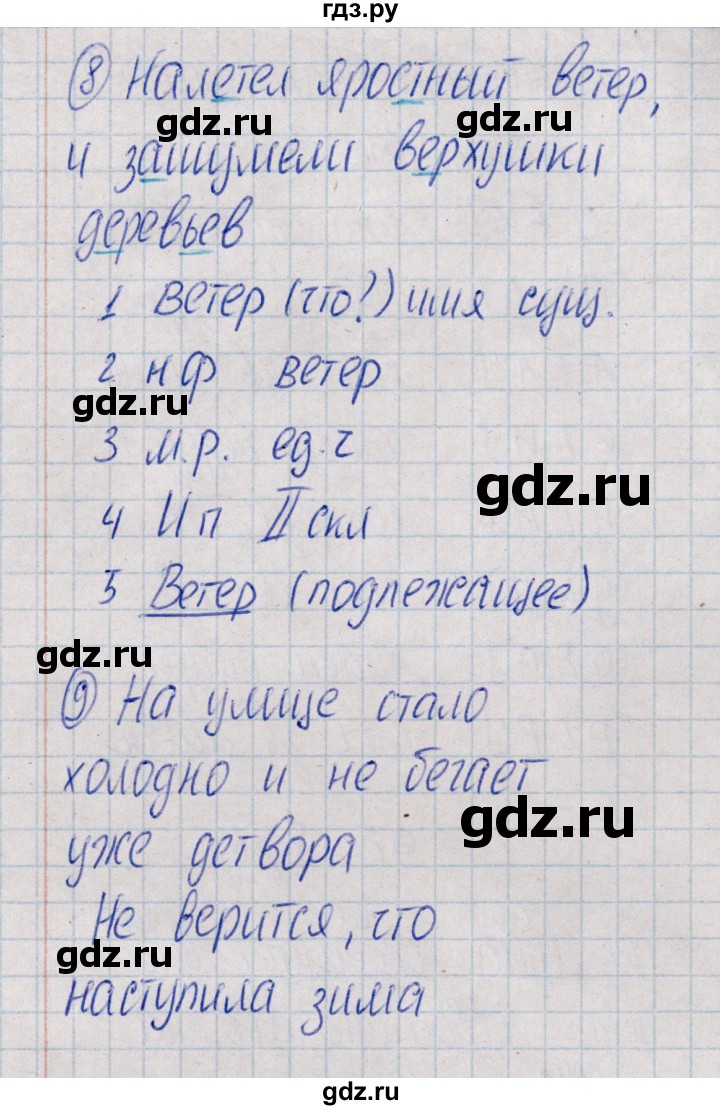 гдз.ру
⑧ Налетел яростный ветер,
gdz.ru
gdz.ru
и зашумели верхушки
деревьев
1 ветер (что?) имя сущ.
2. н ф ветер
gdz.ru
3 м.р. ед.ч
gdz.ru
4 И п II скл
5 Ветер (подлежащее)
gdz.ru
⑨ На улице стало
холодно и не бегает
gdz.ru
уже детвора
Не верится, что
gdz.ru
наступила зима
gdz.ru